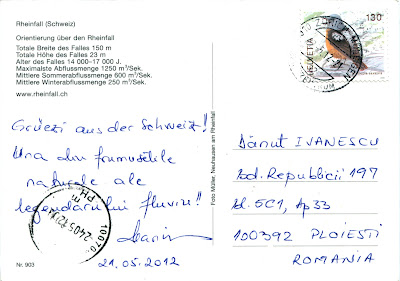 Rheinfall (Schweiz)
Orientierung über den Rheinfall
Totale Breite des Falles 150 m
Totale Höhe des Falles 23 m
Alter des Falles 14 000-17 000 J.
Maximalste Abflussmenge 1250 m³/Sek.
Mittlere Sommerabflussmenge 600 m³/Sek.
Mittlere Winterabflussmenge 250 m³/Sek.
www.rheinfall.ch
Grüezi aus der Schweiz!
Una din frumusețile
naturale ale
legendarului fluviu!
21.05.2012
Nr. 903
Foto Müller, Neuhausen am Rheinfall
130
HELVETIA
Dănuț IVANESCU
bd. Republicii 197
bl. 5C1, Ap 33
100392 PLOIESTI
ROMANIA